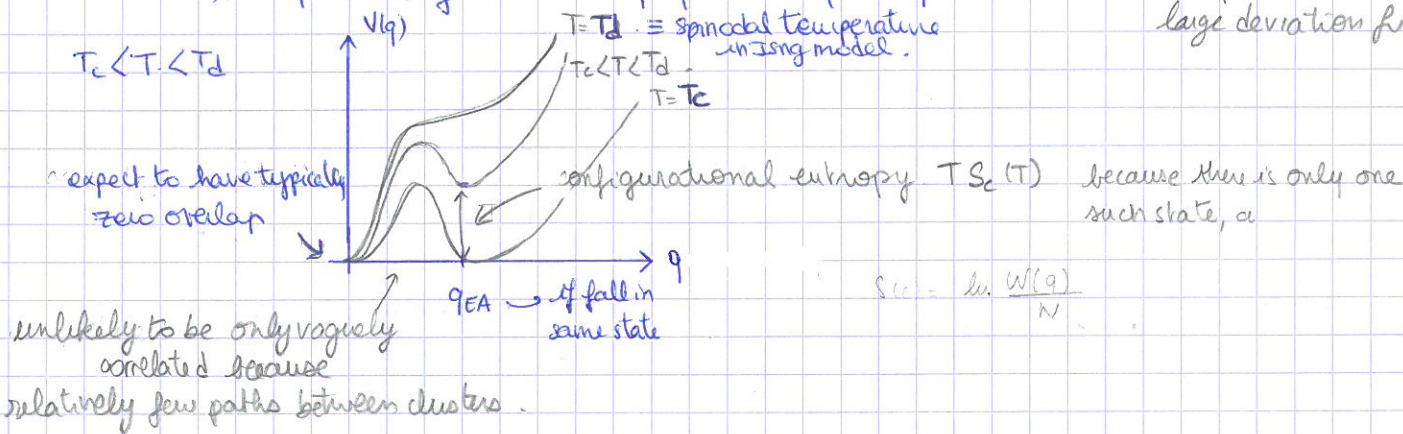 V(q)
T = Td ≡ spinodal temperature
in Ising model.
large deviation
Tc < T < Td
Tc < T < Td
T = Tc
expect to have typically
zero overlap
configurational entropy T Sc (T) because there is only one
such state, a
q
qEA → if fall in
same state
ln W(q)
N
unlikely to be only vaguely
correlated because
relatively few paths between clusters.